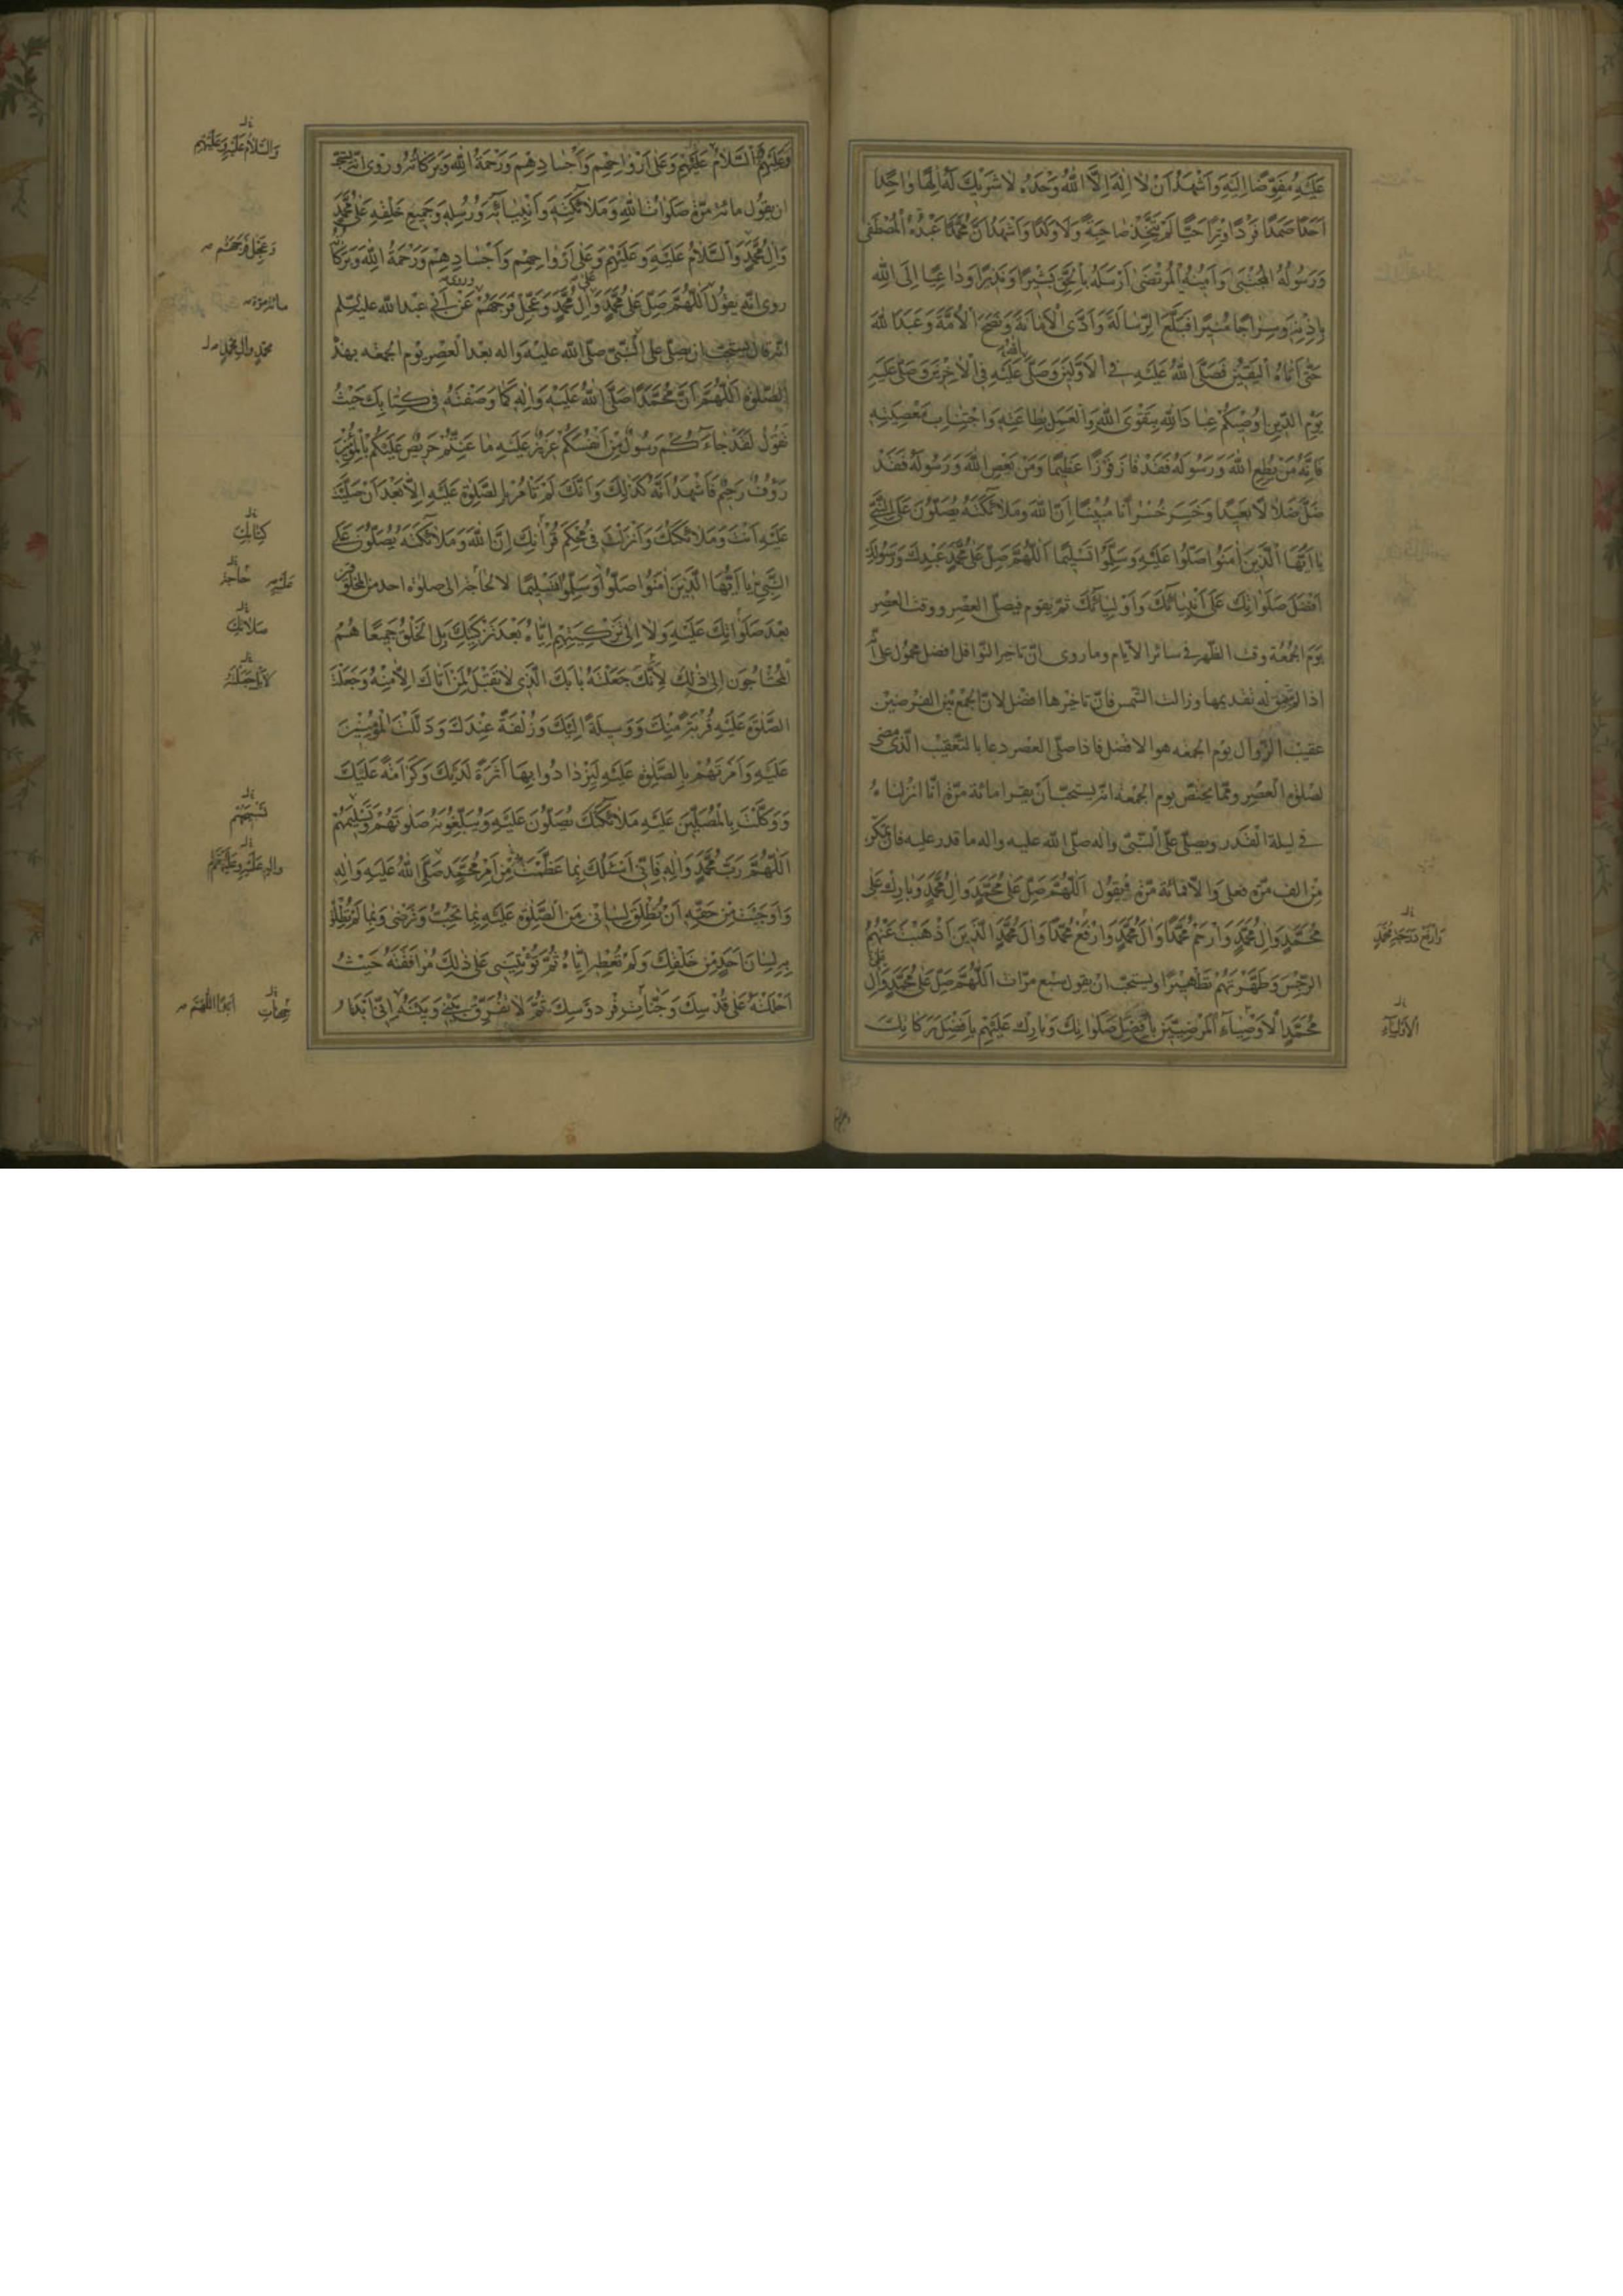 عَلَيْهِ مُفَوِّضًا اِلَيْهِ وَاَشْهَدُ اَنْ لا اِلهَ اِلاَّ اللهُ وَحْدَهُ لا شَرِيْكَ لَهُ اِلهًا واحِدًا
اَحَدًا صَمَدًا فَرْدًا وِتْرًا حَيًّا لَمْ يَتَّخِذْ صاحِبَةً وَلا وَلَدًا وَاَشْهَدُ اَنَّ مُحَمَّدًا عَبْدُهُ الْمُصْطَفى
وَرَسُولُهُ الْمُجْتَبى وَاَمِينُهُ الْمُرْتَضى اَرْسَلَهُ بِالْحَقِّ بَشِيْرًا وَنَذِيْرًا وَداعِيًا اِلَى اللهِ
بِاِذْنِهِ وَسِراجًا مُنِيْرًا فَبَلَّغَ الرِّسالَةَ وَاَدَّى الْاَمانَةَ وَنَصَحَ الْاُمَّةَ وَعَبَدَ اللهَ
حَتّى اَتاهُ الْيَقِيْنُ فَصَلَّى اللهُ عَلَيْهِ فِي الْاَوَّلِيْنَ وَصَلَّى عَلَيْهِ فِي الْاخِرِيْنَ وَصَلَّى عَلَيْهِ
يَوْمَ الدِّيْنِ اُوصِيْكُمْ عِبادَ اللهِ بِتَقْوَى اللهِ وَالْعَمَلِ بِطاعَتِهِ وَاجْتِنابِ مَعْصِيَتِهِ
فَاِنَّهُ مَنْ يُطِعِ اللهَ وَرَسُولَهُ فَقَدْ فازَ فَوْزًا عَظِيْمًا وَمَنْ يَعْصِ اللهَ وَرَسُولَهُ فَقَدْ
ضَلَّ ضَلالًا بَعِيْدًا وَخَسِرَ خُسْرانًا مُبِيْنًا اِنَّ اللهَ وَمَلائِكَتَهُ يُصَلُّونَ عَلَى النَّبِيِّ
يا اَيُّهَا الَّذِيْنَ امَنُوا صَلُّوا عَلَيْهِ وَسَلِّمُوا تَسْلِيْمًا اَللّهُمَّ صَلِّ عَلى مُحَمَّدٍ عَبْدِكَ وَرَسُولِكَ
اَفْضَلَ صَلَواتِكَ عَلى اَنْبِيائِكَ وَاَوْلِيائِكَ ثمّ يقوم فيصلّى العصر ووقت العصر
يوم الجمعة وقت الظّهر فى سائر الايّام وما روى انّ تاخير النّوافل افضل محمول على انّه
اذا لم يتّفق له تقديمها وزالت الشّمس فانّ تاخيرها افضل لانّ الجمع بين الفرضين
عقيب الزّوال يوم الجمعه هو الافضل فاذا صلّى العصر دعا بالتّعقيب الّذى مضى
لصلوة العصر وممّا يختصّ يوم الجمعه انّه يستحبّ ان يقرا مائة مرّة انّا انزلناه
فى ليلة القدر ويصلّى على النّبىّ واله صلّى الله عليه واله ما قدر عليه فان تمكّن
من الف مرّة فعل والا فمائة مرّة فيقول اَللّهُمَّ صَلِّ عَلى مُحَمَّدٍ وَالِ مُحَمَّدٍ وَبارِكْ عَلى
مُحَمَّدٍ وَالِ مُحَمَّدٍ وَارْحَمْ مُحَمَّدًا وَالَ مُحَمَّدٍ وَارْفَعْ مُحَمَّدًا وَالَ مُحَمَّدٍ الَّذِيْنَ اَذْهَبْتَ عَنْهُمُ
الرِّجْسَ وَطَهَّرْتَهُمْ تَطْهِيْرًا ويستحبّ ان يقول سبع مرّات اَللّهُمَّ صَلِّ عَلى مُحَمَّدٍ وَالِ
مُحَمَّدٍ الْاَوْصِياءِ الْمَرْضِيِّيْنَ بِاَفْضَلِ صَلَواتِكَ وَبارِكْ عَلَيْهِمْ بِاَفْضَلِ بَرَكاتِكَ
الاولياء
وَعَلَيْهِمُ السَّلامُ عَلَيْهِمْ وَعَلى اَرْواحِهِمْ وَاَجْسادِهِمْ وَرَحْمَةُ اللهِ وَبَرَكاتُهُ وروى انّه يستحبّ
ان يقول مائة مرّة صَلَواتُ اللهِ وَمَلائِكَتِهِ وَاَنْبِيائِهِ وَرُسُلِهِ وَجَمِيْعِ خَلْقِهِ عَلى مُحَمَّدٍ
وَالِ مُحَمَّدٍ وَالسَّلامُ عَلَيْهِ وَعَلَيْهِمْ وَعَلى اَرْواحِهِمْ وَاَجْسادِهِمْ وَرَحْمَةُ اللهِ وَبَرَكاتُهُ
روى انّه يقول اَللّهُمَّ صَلِّ عَلى مُحَمَّدٍ وَالِ مُحَمَّدٍ وَعَجِّلْ فَرَجَهُمْ عن ابى عبد الله عليه السّلم
انّه قال يستحبّ ان يصلّى على النّبىّ صلّى الله عليه واله بعد العصر يوم الجمعه بهذه
الصّلوة اَللّهُمَّ اِنَّ مُحَمَّدًا صَلَّى اللهُ عَلَيْهِ وَالِهِ كَما وَصَفْتَهُ فِي كِتابِكَ حَيْثُ
تَقُولُ لَقَدْ جاءَكُمْ رَسُولٌ مِنْ اَنْفُسِكُمْ عَزِيْزٌ عَلَيْهِ ما عَنِتُّمْ حَرِيْصٌ عَلَيْكُمْ بِالْمُؤْمِنِيْنَ
رَؤُفٌ رَحِيْمٌ فَاَشْهَدُ اَنَّهُ كَذلِكَ وَاَنَّكَ لَمْ تَامُرْ بِالصَّلوةِ عَلَيْهِ اِلاّ بَعْدَ اَنْ صَلَّيْتَ
عَلَيْهِ اَنْتَ وَمَلائِكَتُكَ وَاَنْزَلْتَ فِي مُحْكَمِ قُرْانِكَ اِنَّ اللهَ وَمَلائِكَتَهُ يُصَلُّونَ عَلَى
النَّبِيِّ يا اَيُّهَا الَّذِيْنَ امَنُوا صَلُّوا وَسَلِّمُوا تَسْلِيْمًا لا لحاجة الى صلوة احد من المخلوقين
بَعْدَ صَلَواتِكَ عَلَيْهِ وَلا اِلى تَزْكِيَتِهِمْ اِيّاهُ بَعْدَ تَزْكِيَتِكَ بَلِ الْخَلْقُ جَمِيْعًا هُمُ
الْمُحْتاجُونَ اِلى ذلِكَ لِاَنَّكَ جَعَلْتَهُ بابَكَ الَّذِي لا تَقْبَلُ لِمَنْ اَتاكَ اِلاّ مِنْهُ وَجَعَلْتَ
الصَّلوةَ عَلَيْهِ قُرْبَةً مِنْكَ وَوَسِيلَةً اِلَيْكَ وَزُلْفَةً عِنْدَكَ وَدَلَلْتَ الْمُؤْمِنِيْنَ
عَلَيْهِ وَاَمَرْتَهُمْ بِالصَّلوةِ عَلَيْهِ لِيَزْدادُوا بِها اَثَرَةً لَدَيْكَ وَكَرامَةً عَلَيْكَ
وَوَكَّلْتَ بِالْمُصَلِّيْنَ عَلَيْهِ مَلائِكَتَكَ يُصَلُّونَ عَلَيْهِ وَيُبَلِّغُونَهُ صَلوتَهُمْ وَتَسْلِيْمَهُمْ
اَللّهُمَّ رَبَّ مُحَمَّدٍ وَالِهِ فَاِنِّي اَسْئَلُكَ بِما عَظَّمْتَ مِنْ اَمْرِ مُحَمَّدٍ صَلَّى اللهُ عَلَيْهِ وَالِهِ
وَاَوْجَبْتَ مِنْ حَقِّهِ اَنْ تُطْلِقَ لِسانِي مِنَ الصَّلوةِ عَلَيْهِ بِما تُحِبُّ وَتَرْضى وَبِما لَمْ تُطْلِقْ
بِهِ لِسانَ اَحَدٍ مِنْ خَلْقِكَ وَلَمْ تُعْطِهِ اِيّاهُ ثُمَّ تُؤْتِيَنِي عَلى ذلِكَ مُرافَقَتَهُ حَيْثُ
اَحْلَلْتَهُ عَلى قُدْسِكَ وَجَنّاتِ فِرْدَوْسِكَ ثُمَّ لا تُفَرِّقْ بَيْنِي وَبَيْنَهُ اِنِّي اَبْدَاُ
وَالسَّلامُ عَلَيْهِ وَعَلَيْهِمْ
وَعَجِّلْ فَرَجَهُمْ
مائة مرّة
مُحَمَّدٍ وَالِ مُحَمَّدٍ
كِتابِكَ
حاجة
صَلاتِكَ